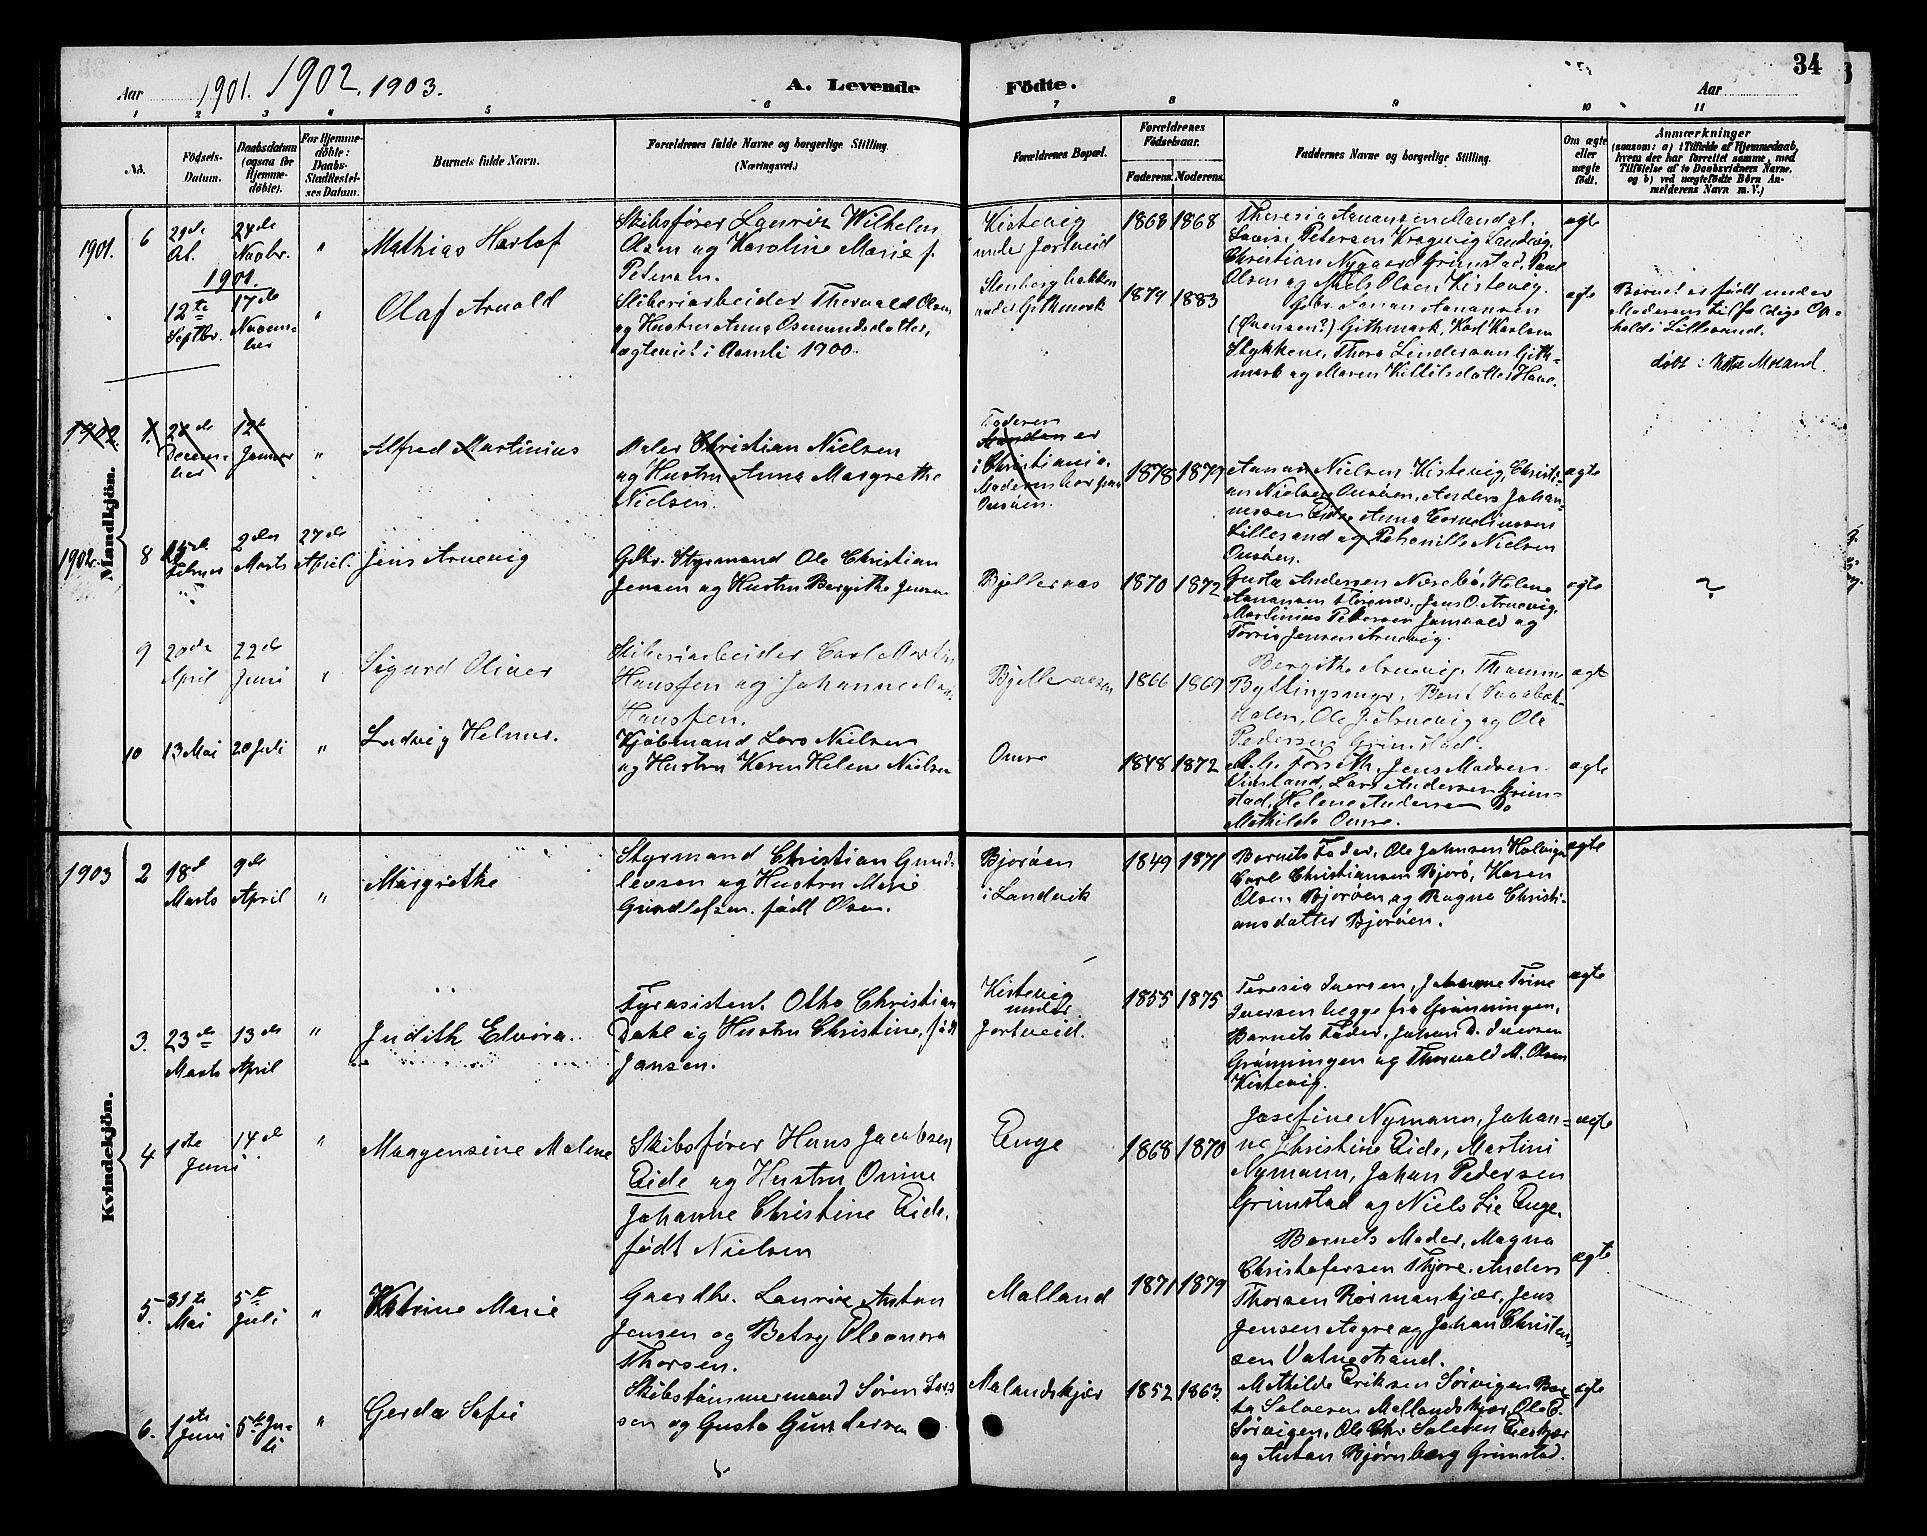 34
Aar 1901. 1902. 1903.
A. Levende Födte.
Aar
1 2 3 4 5 6 7 8 9 10 11
No.
Födsels-
Datum.
Daabsdatum
(ogsaa for
Hjemme-
döbte).
For Hjemme-
döbte:
Daabs-
Stadfæstel-
ses Datum.
Barnets fulde Navn.
Forældrenes fulde Navne og borgerlige Stilling.
(Næringsvei.)
Forældrenes Bopæl.
Forældrenes
Födselsaar.
Faderens. Moderens.
Faddernes Navne og borgerlige Stilling.
Om ægte
eller
uægte
födt.
Anmærkninger
(saasom: a) i Tilfælde af Hjemmedaab,
hvem der har forrettet samme, med
Tilföielse af to Daabsvidners Navne.
og b) ved uægtefödte Börn An-
melderens Navn m. V.)
Mandkjön.
1901. 6
24de
Novbr.
"
Mathias
Skibsfører Lauriz Wilhelm
Olsen og Karoline Marie f.
Petersen.
Kistevig
under Jortveid
1868 1868
Theresia Aanansen Mandal,
Lovise Petersen Kragevig Landvig,
Christian Nygaard Grimstad, Paul
Olsen og Niels Olsen Kistevig.
ægte
1901.
12te
Septbr.
17de
Novem-
ber
"
Olaf Arnold
Skiberiarbeider Thorvald Olsen
og Hustru Anna Osmundsdatter,
ægteviet i Aamli 1900.
under Githmark
1879 1883
(Svensen?) Githmark, Karl Karlsen
Stykkene, Thora Lindersen Gith-
mark og Maren Kittilsdatter Have.
ægte
Barnet er født under
Moderens tilfældige Op-
hold i Lillesand.
døbt: Vestre Moland.
1902. 1.
Decem-
ber
12t
Januar
"
Alfred Martinius
Maler Christian Nielsen
og Hustru Anna Margrethe
Nielsen.
Faderen
er
i Christiania.
Moderen her paa
Omsöen.
1878 1879
Aanan Nielsen Kistevig, Christi-
an Nielsen Omsöen, Anders Johan-
nessen Eide, Anna Cornelinssen
Lillesand og Petronille Nielsen
Omsöen.
ægte
1902. 8
Februar
2den
Marts
27de
April.
Jens Arnevig
Gbr. Styrmand Ole Christian
Jensen og Hustru Bergithe Jensen
Bjellernæs
1870 1872
Gusta Andersen Næsebö, Helene
Aanansen Florenæs, Jens O. Arnevig,
Martinius Petersen Jamvold og
Torris Jensen Arnevig.
ægte
?
9
20de
April
22de
Juni
"
Sigurd Oliver
Skiberiarbeider Carl Martin
Hansfen og Johanne
Hansfen.
1866 1869
Bergithe Arnevig, Thomine
Bent
Ole J. Arnevig og Ole
Pedersen Grimstad.
ægte
10
13 Mai
20 Juli
"
Ludvig Helmer.
Kjöbmand Lars Nielsen
og Hustru Karen Helene Nielsen
Omre
1848 1872
Forseth, Jens Madsen
Lars Andersen Grim-
stad, Helene Andersen Do
Mathilde Omre.
ægte
Kvindekjön.
1903 2
18d
Marts
9de
April
"
Margrethe
Styrmand Christian Gund-
levsen og Hustru Marie
Gundlefsen. født Olsen.
Bjoröen
i Landvik
1849 1871
Barnets Fader, Ole Johnsen Holvigen
Carl Christiansen Bjorö, Karen
Olsen Bjoröen og Ragna Christi-
ansdatter Bjoröen.
ægte
3.
23de
Marts
13de
April
"
Judith Elvira.
Fyrasistent Otto Christian
Dahl og Hustru Christine, født
Jansen.
Kistevig
under
Jortveid.
1855 1875
Teresia Iversen, Johanne Trine
Iversen begge fra Grönningen,
Barnets Fader, Johan D. Iversen
Grönningen og Thorvald M. Olsen
Kistevig.
ægte
4
1ste
Juni
14de
"
Maagensine Malene
Skibsfører Hans Jacobsen
Eide og Hustru Omine
Johanne Christine Eide,
født Nielsen
Enge
1868 1870
Josefine Nymann, Johan-
ne Christine Eide, Martini
Nymann, Johan Pedersen
Grimstad og Niels Lie Enge.
ægte
5.
31te
Mai
5te
Juli
"
Katrine Marie
Gaardbr. Lauriz Anton
Jensen og Betsy Eleonora
Thorsen.
Malland
1871 1879
Barnets Moder, Magna
Christofersen Thjore, Anders
Thorsen Rörmankjær, Jens
Jensen Aagre og Johan Christen-
sen Vatnestrand.
ægte
6.
1ste
Juni
5te Ju-
li
"
Gerda Sofie
Skibstømmermand Sören Lars
sen og Gusta Gundersen
Malandskjær
1852 1863.
Mathilde Eriksen Sörvigen Ber-
ta Salvesen Mallandskjær, Ole E.
Sörvigen, Ole Chr. Salvesen Eieskjær
og Anton Bjørnberg Grimstad.
ægte